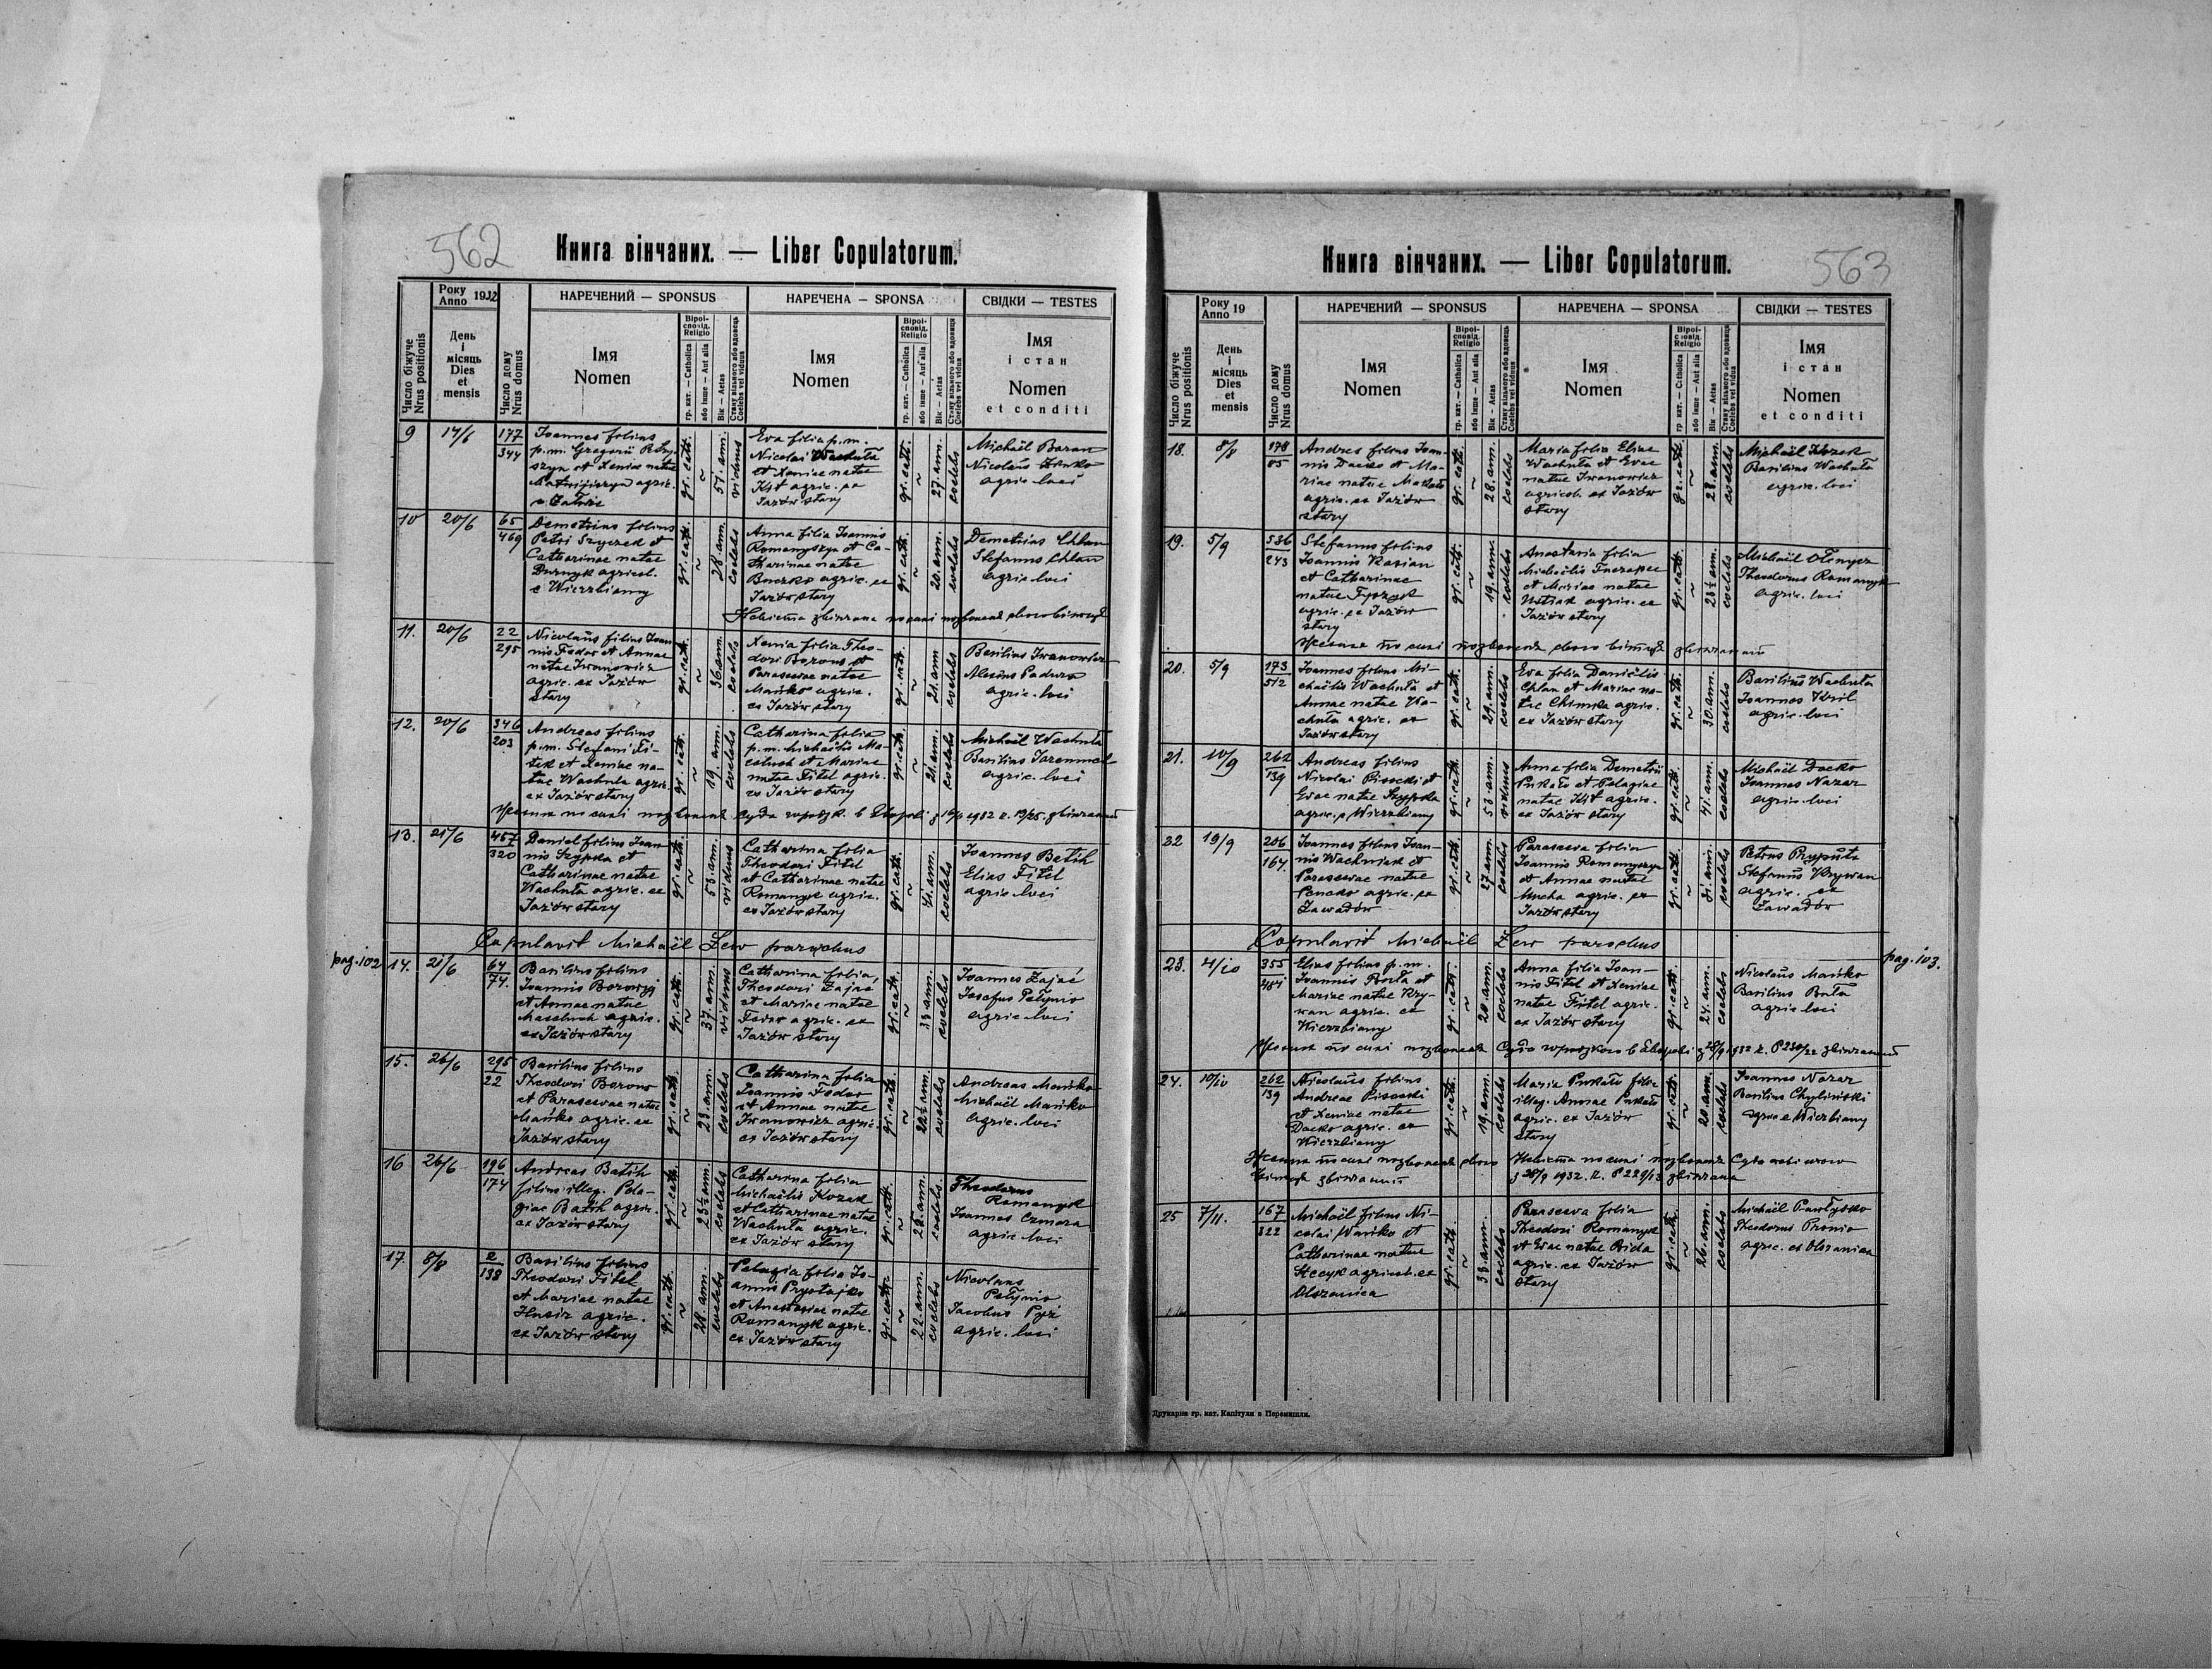 562
Книга вінчаних. — Liber Copulatorum.
Число біжуче
Nrus positionis
Року
Anno 1932
День
і
місяць
Dies
et
mensis
Число дому
Nrus domus
НАРЕЧЕНИЙ — SPONSUS
Імя
Nomen
Віроі-
сповід.
Religio
гр. кат. — Catholica
або інше — Aut alia
Вік — Aetas
Стану вільного або вдовець
Coelebs vel viduus
НАРЕЧЕНА — SPONSA
Імя
Nomen
Віроі-
сповід.
Religio
гр. кат. — Catholica
або інше — Aut alia
Вік — Aetas
Стану вільного або вдовиця
Coelebs vel vidua
СВІДКИ — TESTES
Імя
і стан
Nomen
et conditi
9
14/6
177
344
Joannes filius
p.m. Gregorii
et Xeniae natae
agric.
gr. cath.
51. ann.
viduus
Eva filia p.m.
Nicolai Wachuta
et Xeniae natae
Kit agric. ex
Jazów stary
gr. cath.
27. ann.
coelebs
Michaël Baran
Nicolaus
agric. loci
10
20/6
65
469
Demetrius filius
Petri Szyczek et
Catharinae natae
Durnyk agricol.
e Wierzbiany
gr. cath.
28. ann.
coelebs
Anna filia Joannis
Romanyszyn et Ca-
tharinae natae
Buczko agric. ex
Jazów stary
gr. cath.
20. ann.
coelebs
Demetrius Chlan
Stefanus Chlan
agric. loci
11.
20/6
22
295
Nicolaus filius Joan-
nis Fedor et Annae
natae Iwanowicz
agric. ex Jazów
stary
gr. cath.
36. ann.
coelebs
Xenia filia Theo-
dori Borowo et
Parascevae natae
Mańko agric.
ex Jazów stary
gr. cath.
21. ann
coelebs
Basilius Iwanowicz
Alexius Padura
agric. loci
12.
20/6
346
203
Andreas filius
p.m. Stefani Fi-
tel et Xeniae na-
tae Wachuta agric.
ex Jazów stary
gr. cath.
19. ann.
coelebs
Catharina filia
p.m. Michaëlis Ma-
celuch et Mariae
natae Fitel agric.
ex Jazów stary
gr. cath.
21. ann.
coelebs
Michaël Wachuta
Basilius Jaremma
agric. loci
13.
21/6
457
320
Daniel filius Joan-
nis Szypka et
Catharinae natae
Wachuta agric. ex
Jazów stary
gr. cath.
53. ann.
viduus
Catharina filia
Theodori Fitel
et Catharinae natae
Romanyk agric.
ex Jazów stary
gr. cath.
41. ann.
coelebs
Joannes Batih
Elias Fitel
agric. loci
Copulavit Michaël Lew parochus
pag. 102
14.
21/6
64
74.
Basilius filius
Joannis Borowyj
et Annae natae
Maceluch agric.
ex Jazów stary
gr. cath.
37. ann.
viduus
Catharina filia
Theodori Zając
et Mariae natae
Fedor agric. ex
Jazów stary
gr. cath.
33. ann.
coelebs
Joannes Zając
Josefus Petynio
agric. loci
15.
26/6
295
22
Basilius filius
Theodori Borowo
et Parascevae natae
Mańko agric. ex
Jazów stary
gr. cath.
23. ann.
coelebs
Catharina filia
Joannis Fedor
et Annae natae
Iwanowicz agric.
ex Jazów stary
gr. cath.
coelebs
Andreas Mańko
Michaël Mańko
agric. loci
16
26/6
196
174
Andreas Batih
filius illeg. Pela-
giae Batih agric.
ex Jazów stary
gr. cath.
coelebs
Catharina filia
Michaëlis Kozak
et Catharinae natae
Wachuta agric.
ex Jazów stary
gr. cath.
coelebs.
Theodorus
Romanyk
Joannes Czmara
agric. loci
17.
8/8
2
138
Basilius filius
Theodori Fitel
et Mariae natae
Husir agric.
ex Jazów stary
gr. cath.
28. ann.
coelebs
Pelagia filia Jo-
annis Prystajko
et Anastasiae natae
Romanyk agric.
ex Jazów stary
gr. cath.
22. ann.
coelebs
Nicolaus
Petynio
Jacobus Pyż
agric. loci
563
Книга вінчаних. — Liber Copulatorum.
Число біжуче
Nrus positionis
Року
Anno 19
День
і
місяць
Dies
et
mensis
Число дому
Nrus domus
НАРЕЧЕНИЙ — SPONSUS
Імя
Nomen
Віроі-
сповід.
Religio
гр. кат. — Catholica
або інше — Aut alia
Вік — Aetas
Стану вільного або вдовець
Coelebs vel viduus
НАРЕЧЕНА — SPONSA
Імя
Nomen
Віроі-
сповід.
Religio
гр. кат. — Catholica
або інше — Aut alia
Вік — Aetas
Стану вільного або вдовиця
Coelebs vel vidua
СВІДКИ — TESTES
Імя
і стан
Nomen
et conditi
18.
8/8
178
85
Andreas filius Joan-
nis Dacko et Ma-
riae natae
agric. ex Jazów
stary
gr. cath.
28. ann.
coelebs
Maria filia Eliae
Wachuta et Evae
natae Iwanowicz
agricol. ex Jazów
stary
gr. cath.
23. ann.
coelebs
Michaël Kozak
Basilius Wachuta
agric. loci
19.
5/9
536
243
Stefanus filius
Joannis Kasian
et Catharinae
natae
agric. ex Jazów
stary
gr. cath.
19. ann.
coelebs
Anastasia filia
Michaëlis
et Mariae natae
agric. ex
Jazów stary
gr. cath.
coelebs
Michaël
Theodorus Romanyk
agric. loci
20.
5/9
173
512
Joannes filius Mi-
chaëlis Wachuta et
Annae natae Wa-
chuta agric. ex
Jazów stary
gr. cath.
29. ann.
coelebs
Eva filia Daniëlis
Chlan et Mariae na-
tae Chimka agric.
ex Jazów stary
gr. cath.
30. ann.
coelebs
Basilius Wachuta
Joannes
agric. loci
21.
10/9
262
139
Andreas filius
Nicolai Pisocki et
Evae natae Szypka
agric. e Wierzbiany
gr. cath.
53. ann.
viduus
Anna filia Demetrii
Pukało et Pelagiae
natae Kit agric.
ex Jazów stary
gr. cath.
41. ann.
coelebs
Michaël Dacko
Joannes Nazar
agric. loci
22
19/9
206
164.
Joannes filius Joan-
nis Wachniak et
Parascevae natae
agric. ex
Zawadów
gr. cath.
27. ann.
coelebs
Parasceva filia
Joannis Romanyszyn
et Annae natae
Mucha agric. ex
Jazów stary
gr. cath.
31. ann.
coelebs
Petrus
Stefanus Krywan
agric. ex
Zawadów
Copulavit Michaël Lew parochus
pag. 103.
23.
4/10
355
Elias filius p.m.
Joannis et
Mariae natae Kry-
wan agric. ex
Wierzbiany
gr. cath.
20. ann.
coelebs
Anna filia Joan-
nis Fitel et Xeniae
natae Fitel agric.
ex Jazów stary
gr. cath.
24. ann.
coelebs
Nicolaus Mańko
Basilius
agric. loci
24.
10/10
262
139
Nicolaus filius
Andreae Pisocki
et Xeniae natae
Dacko agric. ex
Wierzbiany
gr. cath.
19. ann.
coelebs
Maria Pukało filia
illeg. Annae Pukało
agric. ex Jazów
stary
gr. cath.
20. ann.
coelebs
Joannes Nazar
Basilius Chyliński
agric. e Wierzbiany
25
7/11.
167
322
Michaël filius Ni-
colai Wańko et
Catharinae natae
Stecyk agricol. ex
Olszanica
gr. cath.
33. ann.
coelebs
Parasceva filia
Theodori Romanyk
et Evae natae Bida
agric. ex Jazów
stary
gr. cath.
26. ann.
coelebs
Michaël Pawłyszko
Theodorus Pronio
agric. ex Olszanica
Друкарня гр. кат. Капітули в Перемишли.